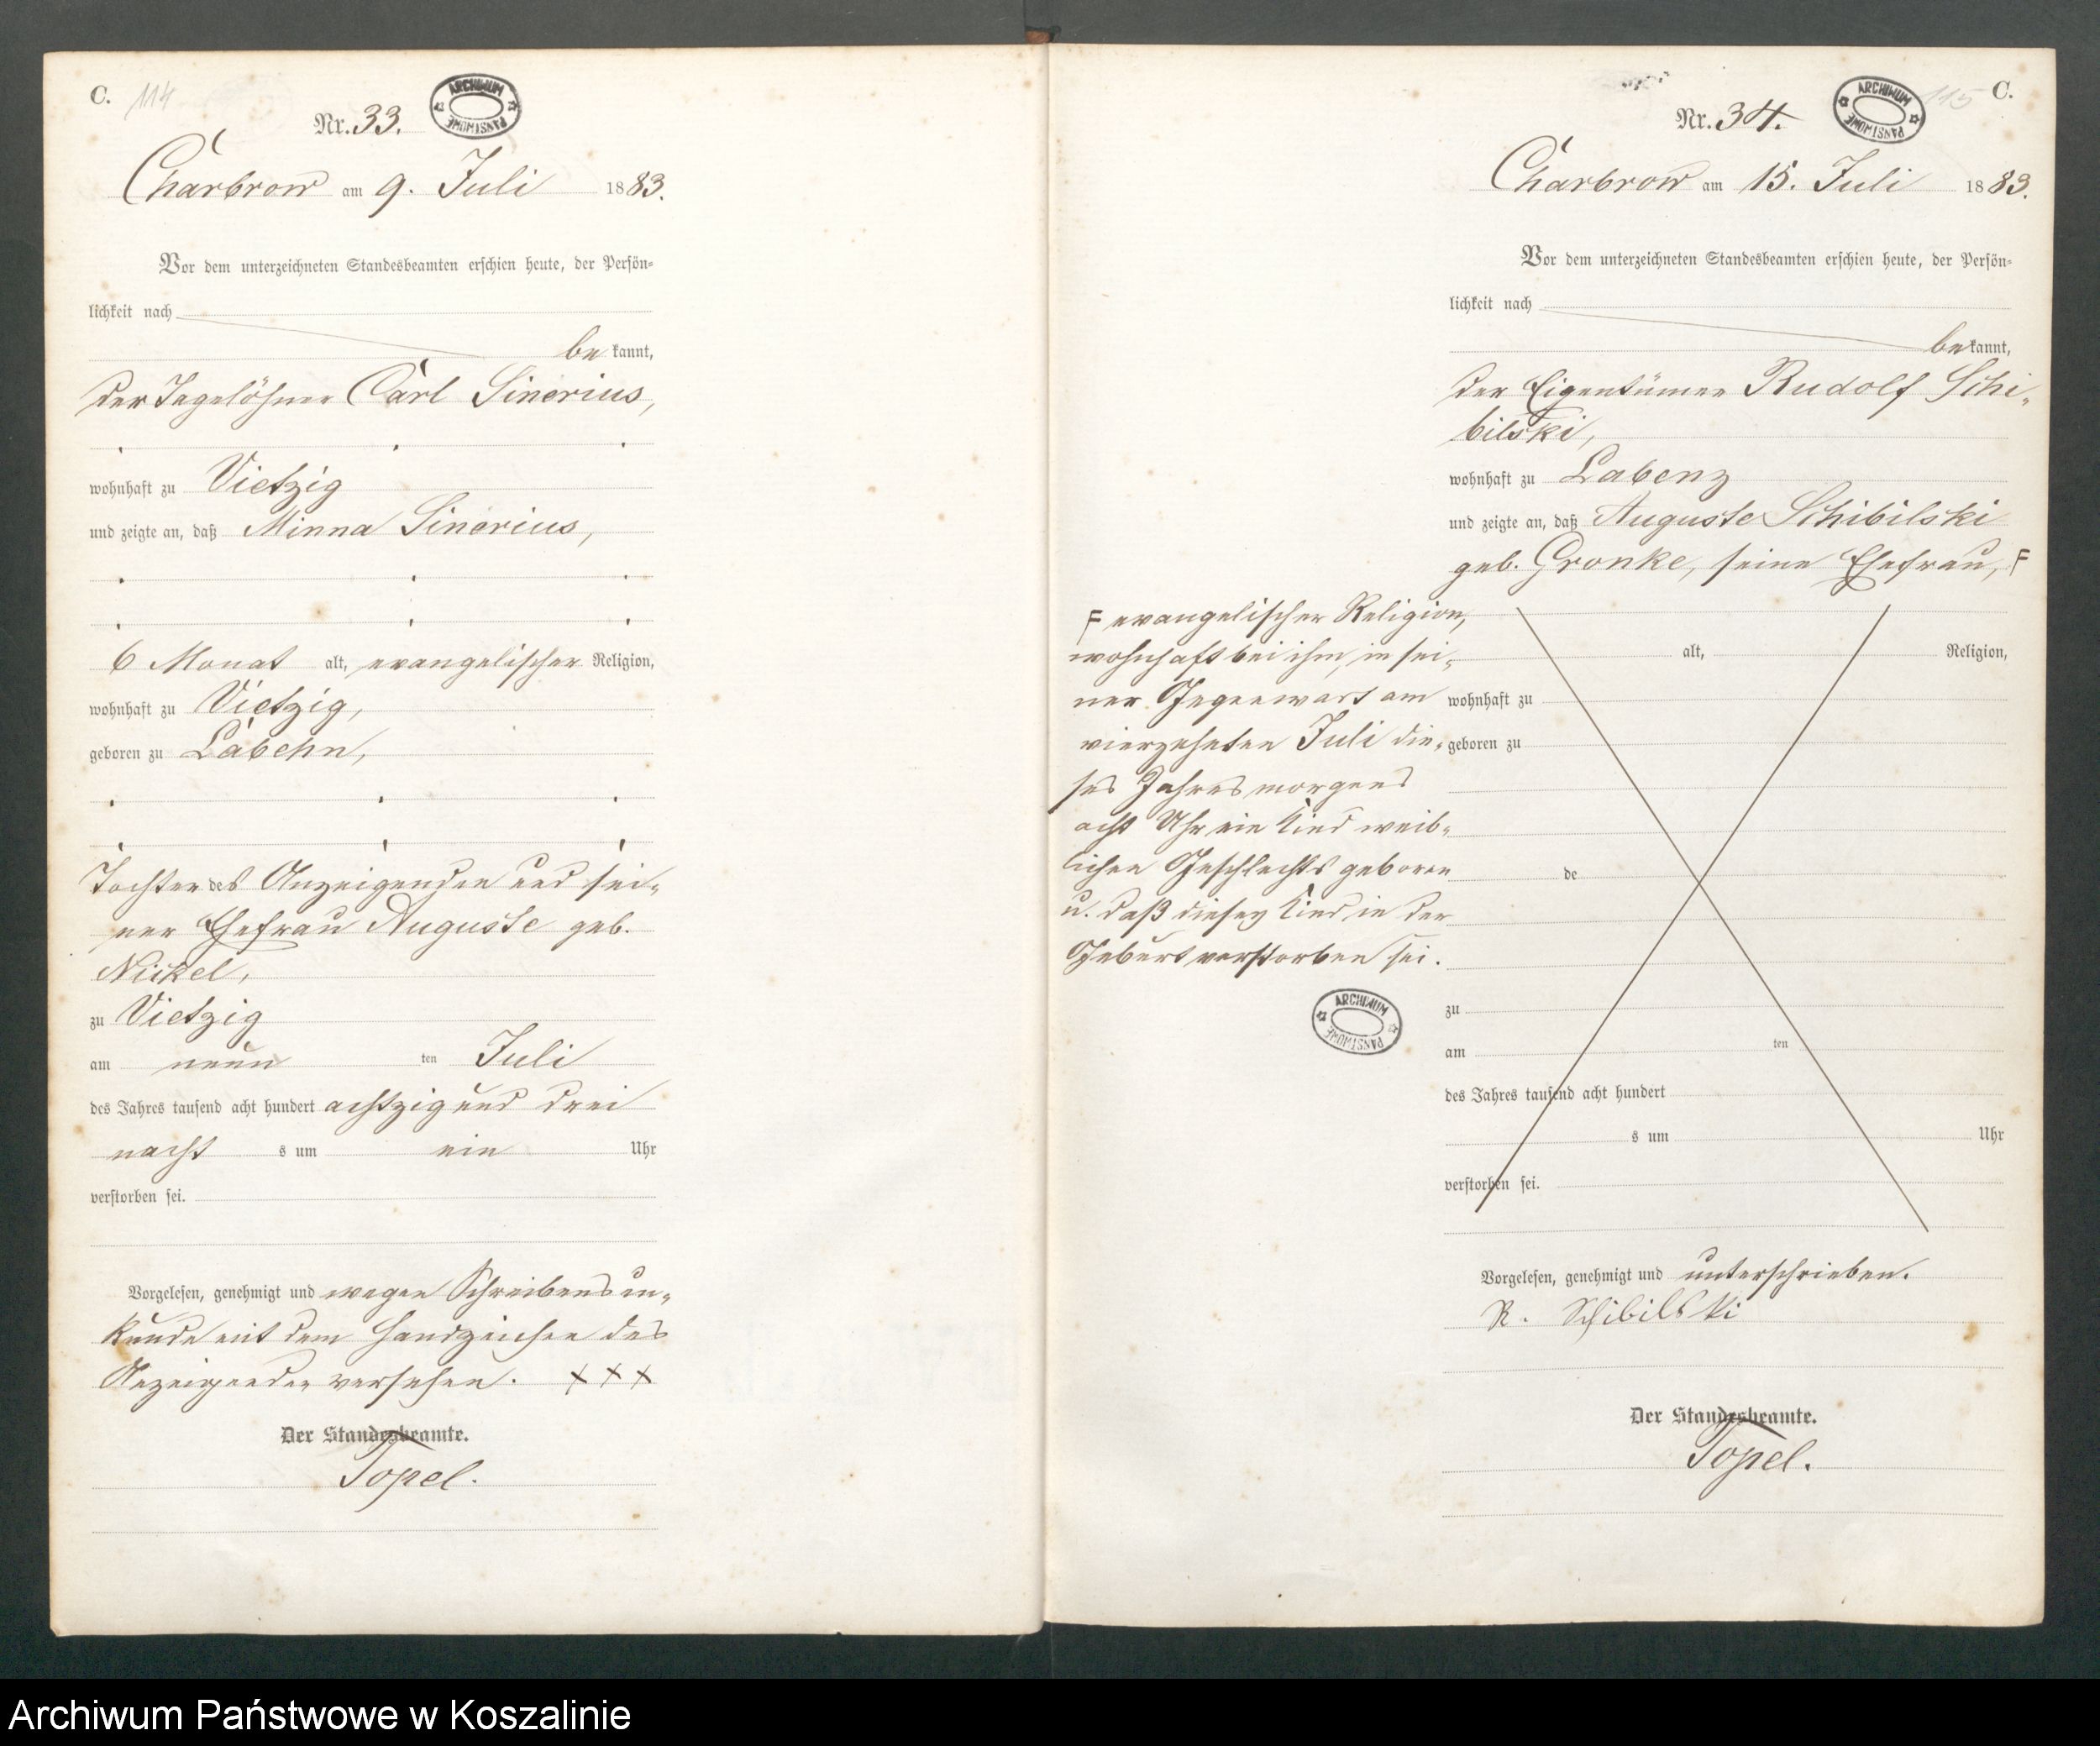 C. 114
Nr. 33.
ARCHIWUM PAŃSTWOWE
Charbrow am 9. Juli 1883.
Vor dem unterzeichneten Standesbeamten erschien heute, der Persön-
lichkeit nach
be kannt,
der Tagelöhner Carl Sinorius,
wohnhaft zu Vietzig
und zeigte an, daß Minna Sinorius,
6 Monat alt, evangelischer Religion,
wohnhaft zu Vietzig,
geboren zu Labehn,
Tochter des Anzeigenden und sei-
ner Ehefrau Auguste geb.
Nickel,
zu Vietzig
am neun ten Juli
des Jahres tausend acht hundert achtzig und drei
nacht s um ein Uhr
verstorben sei.
Vorgelesen, genehmigt und wegen Schreibensun-
kunde mit dem Handzeichen des
Anzeigenden versehen. XXX
Der Standesbeamte.
Topel.
115 C.
Nr. 34.
ARCHIWUM PAŃSTWOWE
Charbrow am 15. Juli 1883.
Vor dem unterzeichneten Standesbeamten erschien heute, der Persön-
lichkeit nach
be kannt,
der Eigentümer Rudolf Schi-
bilski,
wohnhaft zu Labenz
und zeigte an, daß Auguste Schibilski
geb. Gronke, seine Ehefrau, F
F evangelischer Religion,
wohnhaft bei ihm, in sei-
ner Gegenwart am
vierzehnten Juli die-
ses Jahres morgens
acht Uhr ein Kind weib-
lichen Geschlechts geboren
u. daß dieses Kind in der
Geburt verstorben sei.
ARCHIWUM PAŃSTWOWE
alt, Religion,
wohnhaft zu
geboren zu
de
zu
am ten
des Jahres tausend acht hundert
s um Uhr
verstorben sei.
Vorgelesen, genehmigt und unterschrieben.
R. Schibilski
Der Standesbeamte.
Topel.
Archiwum Państwowe w Koszalinie